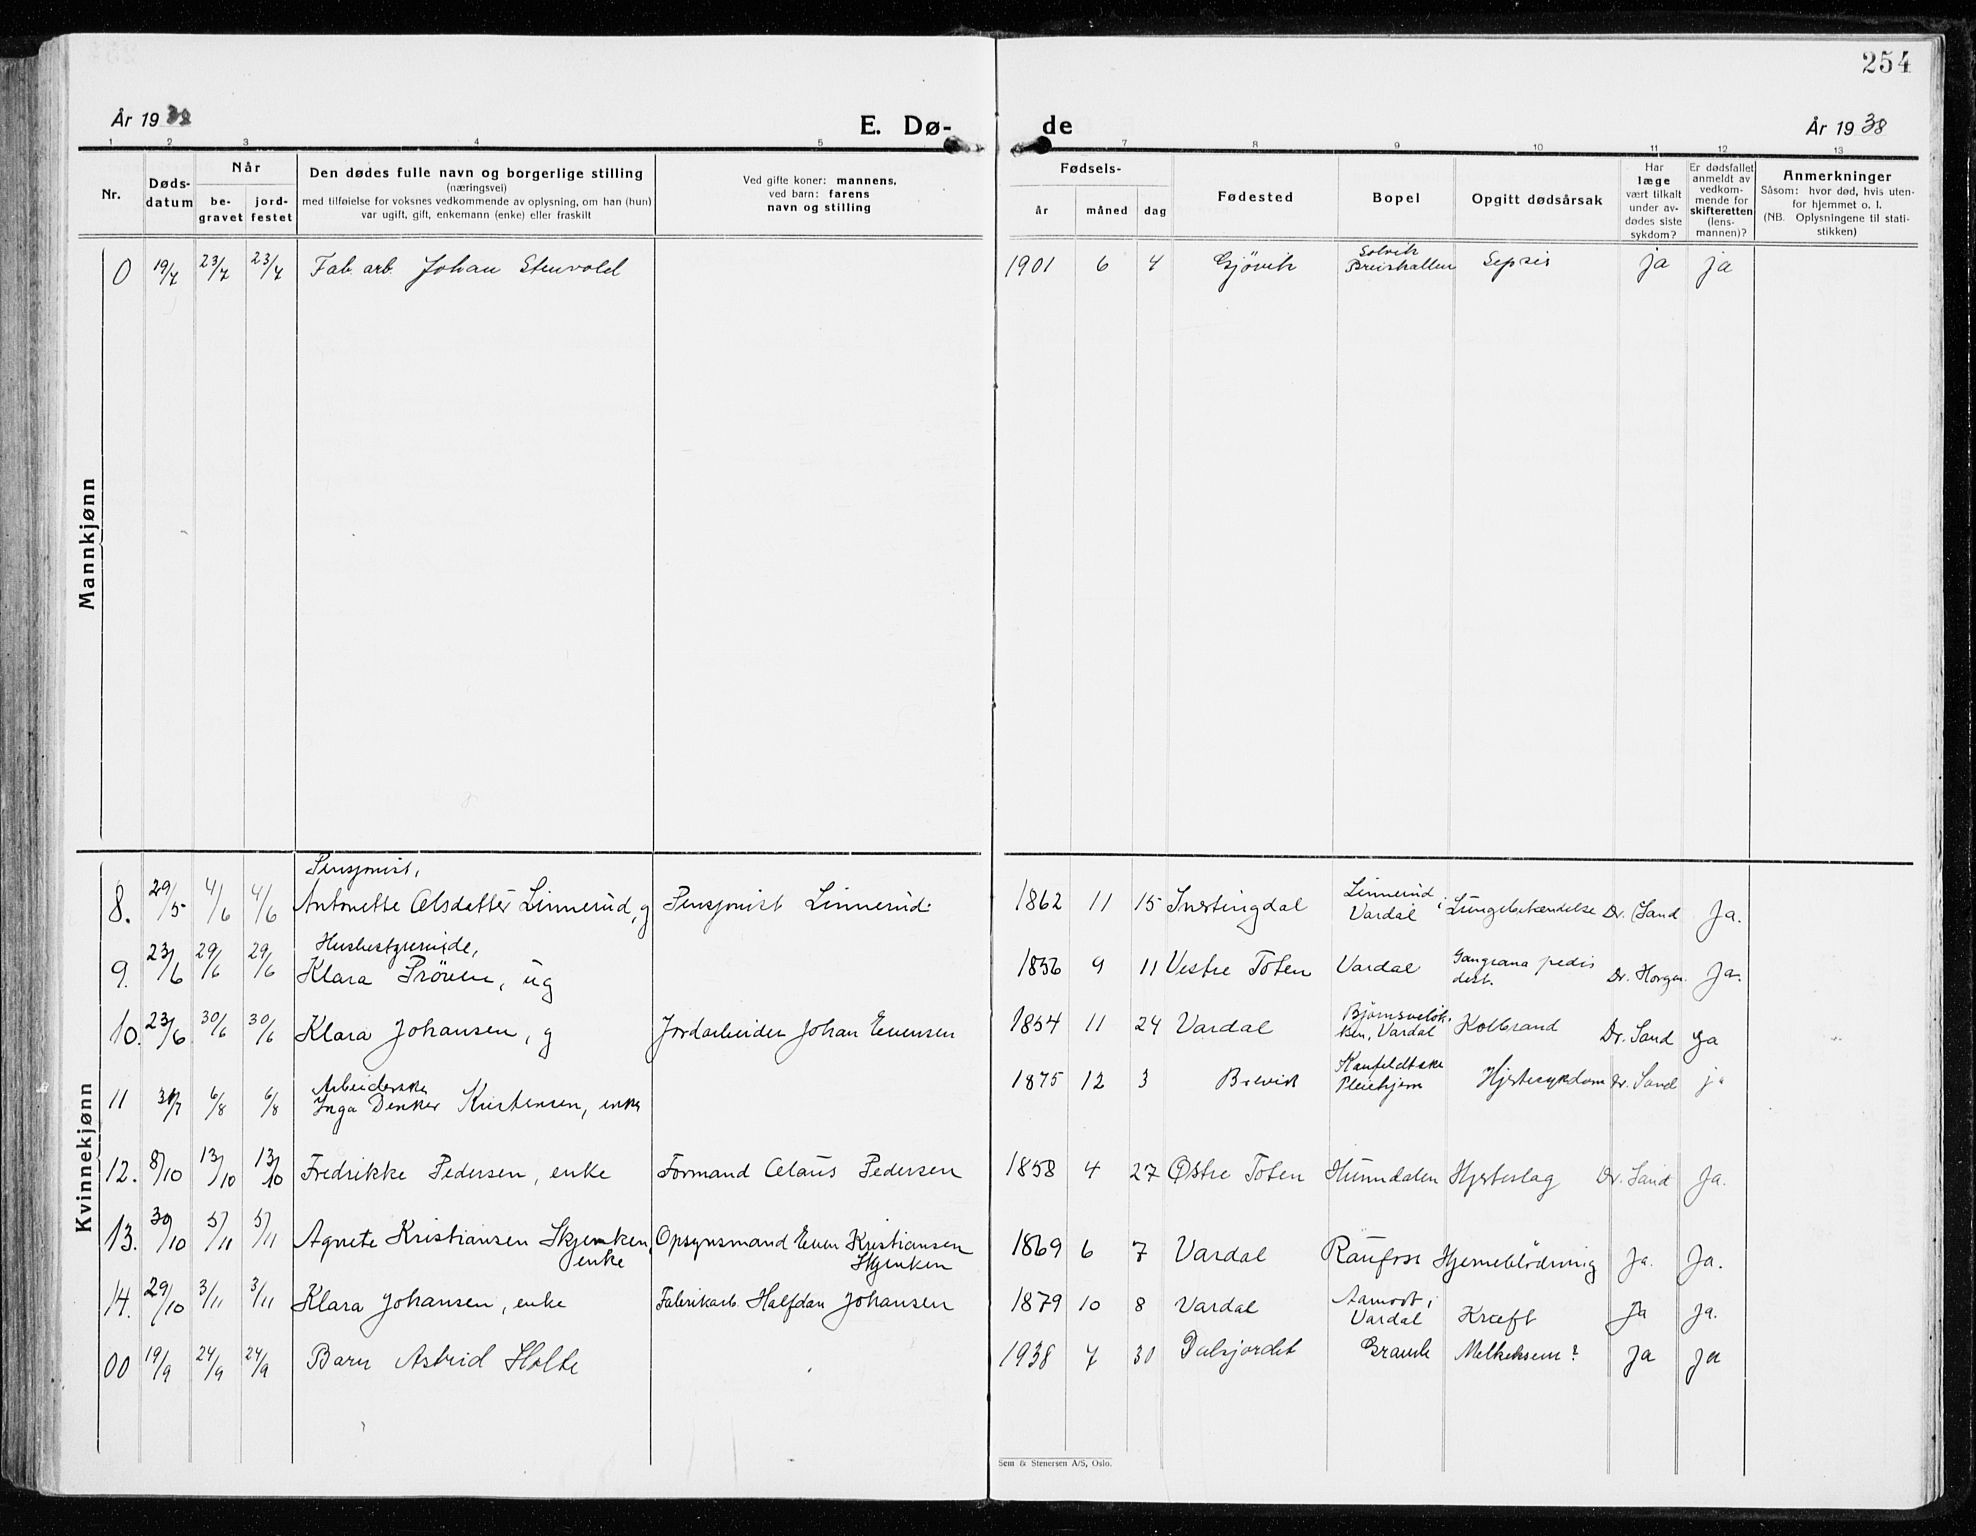 254
År 1938
E. Dø-
de
År 1938
1 2 3 4 5 7 8 9 10 11 12 13
Nr.
Døds-
datum
Når
be-
gravet
jord-
festet
Den dødes fulle navn og borgerlige stilling
(næringsvei)
med tilføielse for voksnes vedkommende av oplysning, om han (hun)
var ugift, gift, enkemann (enke) eller fraskilt
Ved gifte koner: mannens,
ved barn: farens
navn og stilling
Fødsels-
år
måned
dag
Fødested
Bopel
Opgitt dødsårsak
Har
læge
vært tilkalt
under av-
dødes siste
sykdom?
Er dødsfallet
anmeldt av
vedkom-
mende for
skifteretten
(lens-
mannen)?
Anmerkninger
Såsom: hvor død, hvis uten-
for hjemmet o. l.
(NB. Oplysningene til stati-
stikken)
Mannkjønn
Solvik
0 19/7 23/7 23/7 Fab. arb. Johan Stenvold 1901 6 4 Gjøvik Breiskallen Sepsis ja ja
Kvinnekjønn
Pensjonist,
Linnerud i
8. 29/5 4/6 4/6 Antonette Olsdatter Linnerud, g Pensjonist Linnerud 1862 11 15 Snertingdal Vardal Lungebetændelse Dr. Sand Ja.
Husbestyrerinde,
Gangræna pedis
9. 23/6 29/6 29/6 Klara Prøven, ug 1856 9 11 Vestre Toten Vardal dext. Dr. Horgen Ja.
10. 23/6 30/6 30/6 Klara Johansen, g Jordarbeider Johan Evensen 1854 11 24 Vardal ken, Vardal Kolbrand Dr. Sand Ja
Arbeiderske
11 31/7 6/8 6/8 Inga Denker Kristensen, enke 1875 12 3 Brevik Pleiehjem Hjertesykdom Dr. Sand ja
12. 8/10 13/10 13/10 Fredrikke Pedersen, enke Formand Olaus Pedersen 1858 4 27 Østre Toten Hunndalen Hjerteslag Dr. Sand Ja.
13. 30/10 5/11 5/11 Agnete Kristiansen Skjenken, Opsynsmand Even Kristiansen 1869 6 7 Vardal Raufoss Hjerneblødning Ja. Ja.
enke Skjenken
14. 29/10 3/11 3/11 Klara Johansen, enke Fabrikarb. Halfdan Johansen 1879 10 8 Vardal Aamodt i Kræft Ja Ja.
Vardal
00 19/9 24/9 24/9 Barn Astrid Holte 1938 7 30 Dalsjordet Grande Melkeksem? Ja ja
Sem & Stenersen A/S, Oslo.